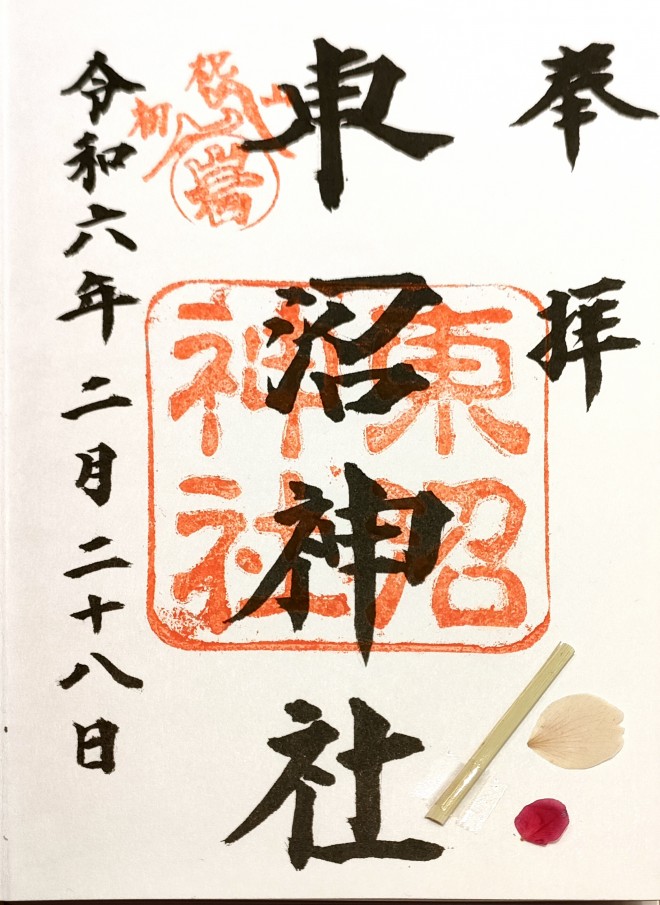 奉拝
東沼神社
東沼
神社
令和六年二月二十八日